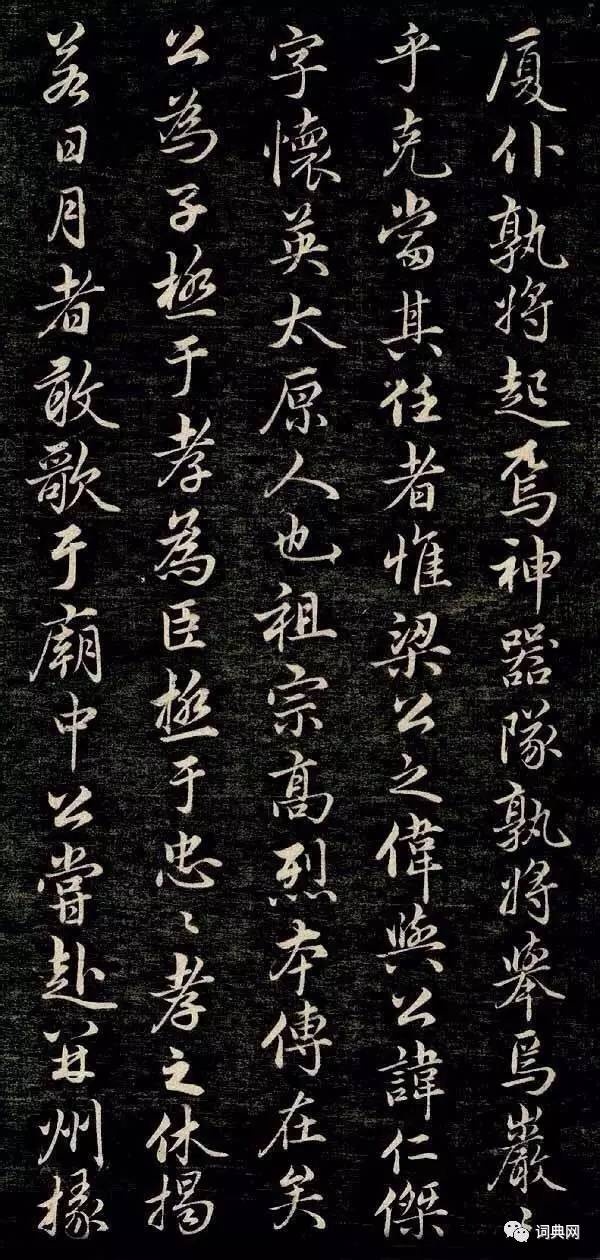 厦仆孰將起焉神器隊孰將舉焉巖〻
乎克當其任者惟梁公之偉與公諱仁傑
字懷英太原人也祖宗高烈本傳在矣
公為子極于孝為臣極于忠〻孝之休揭
若日月者敢歌于廟中公嘗赴并州掾
词典网